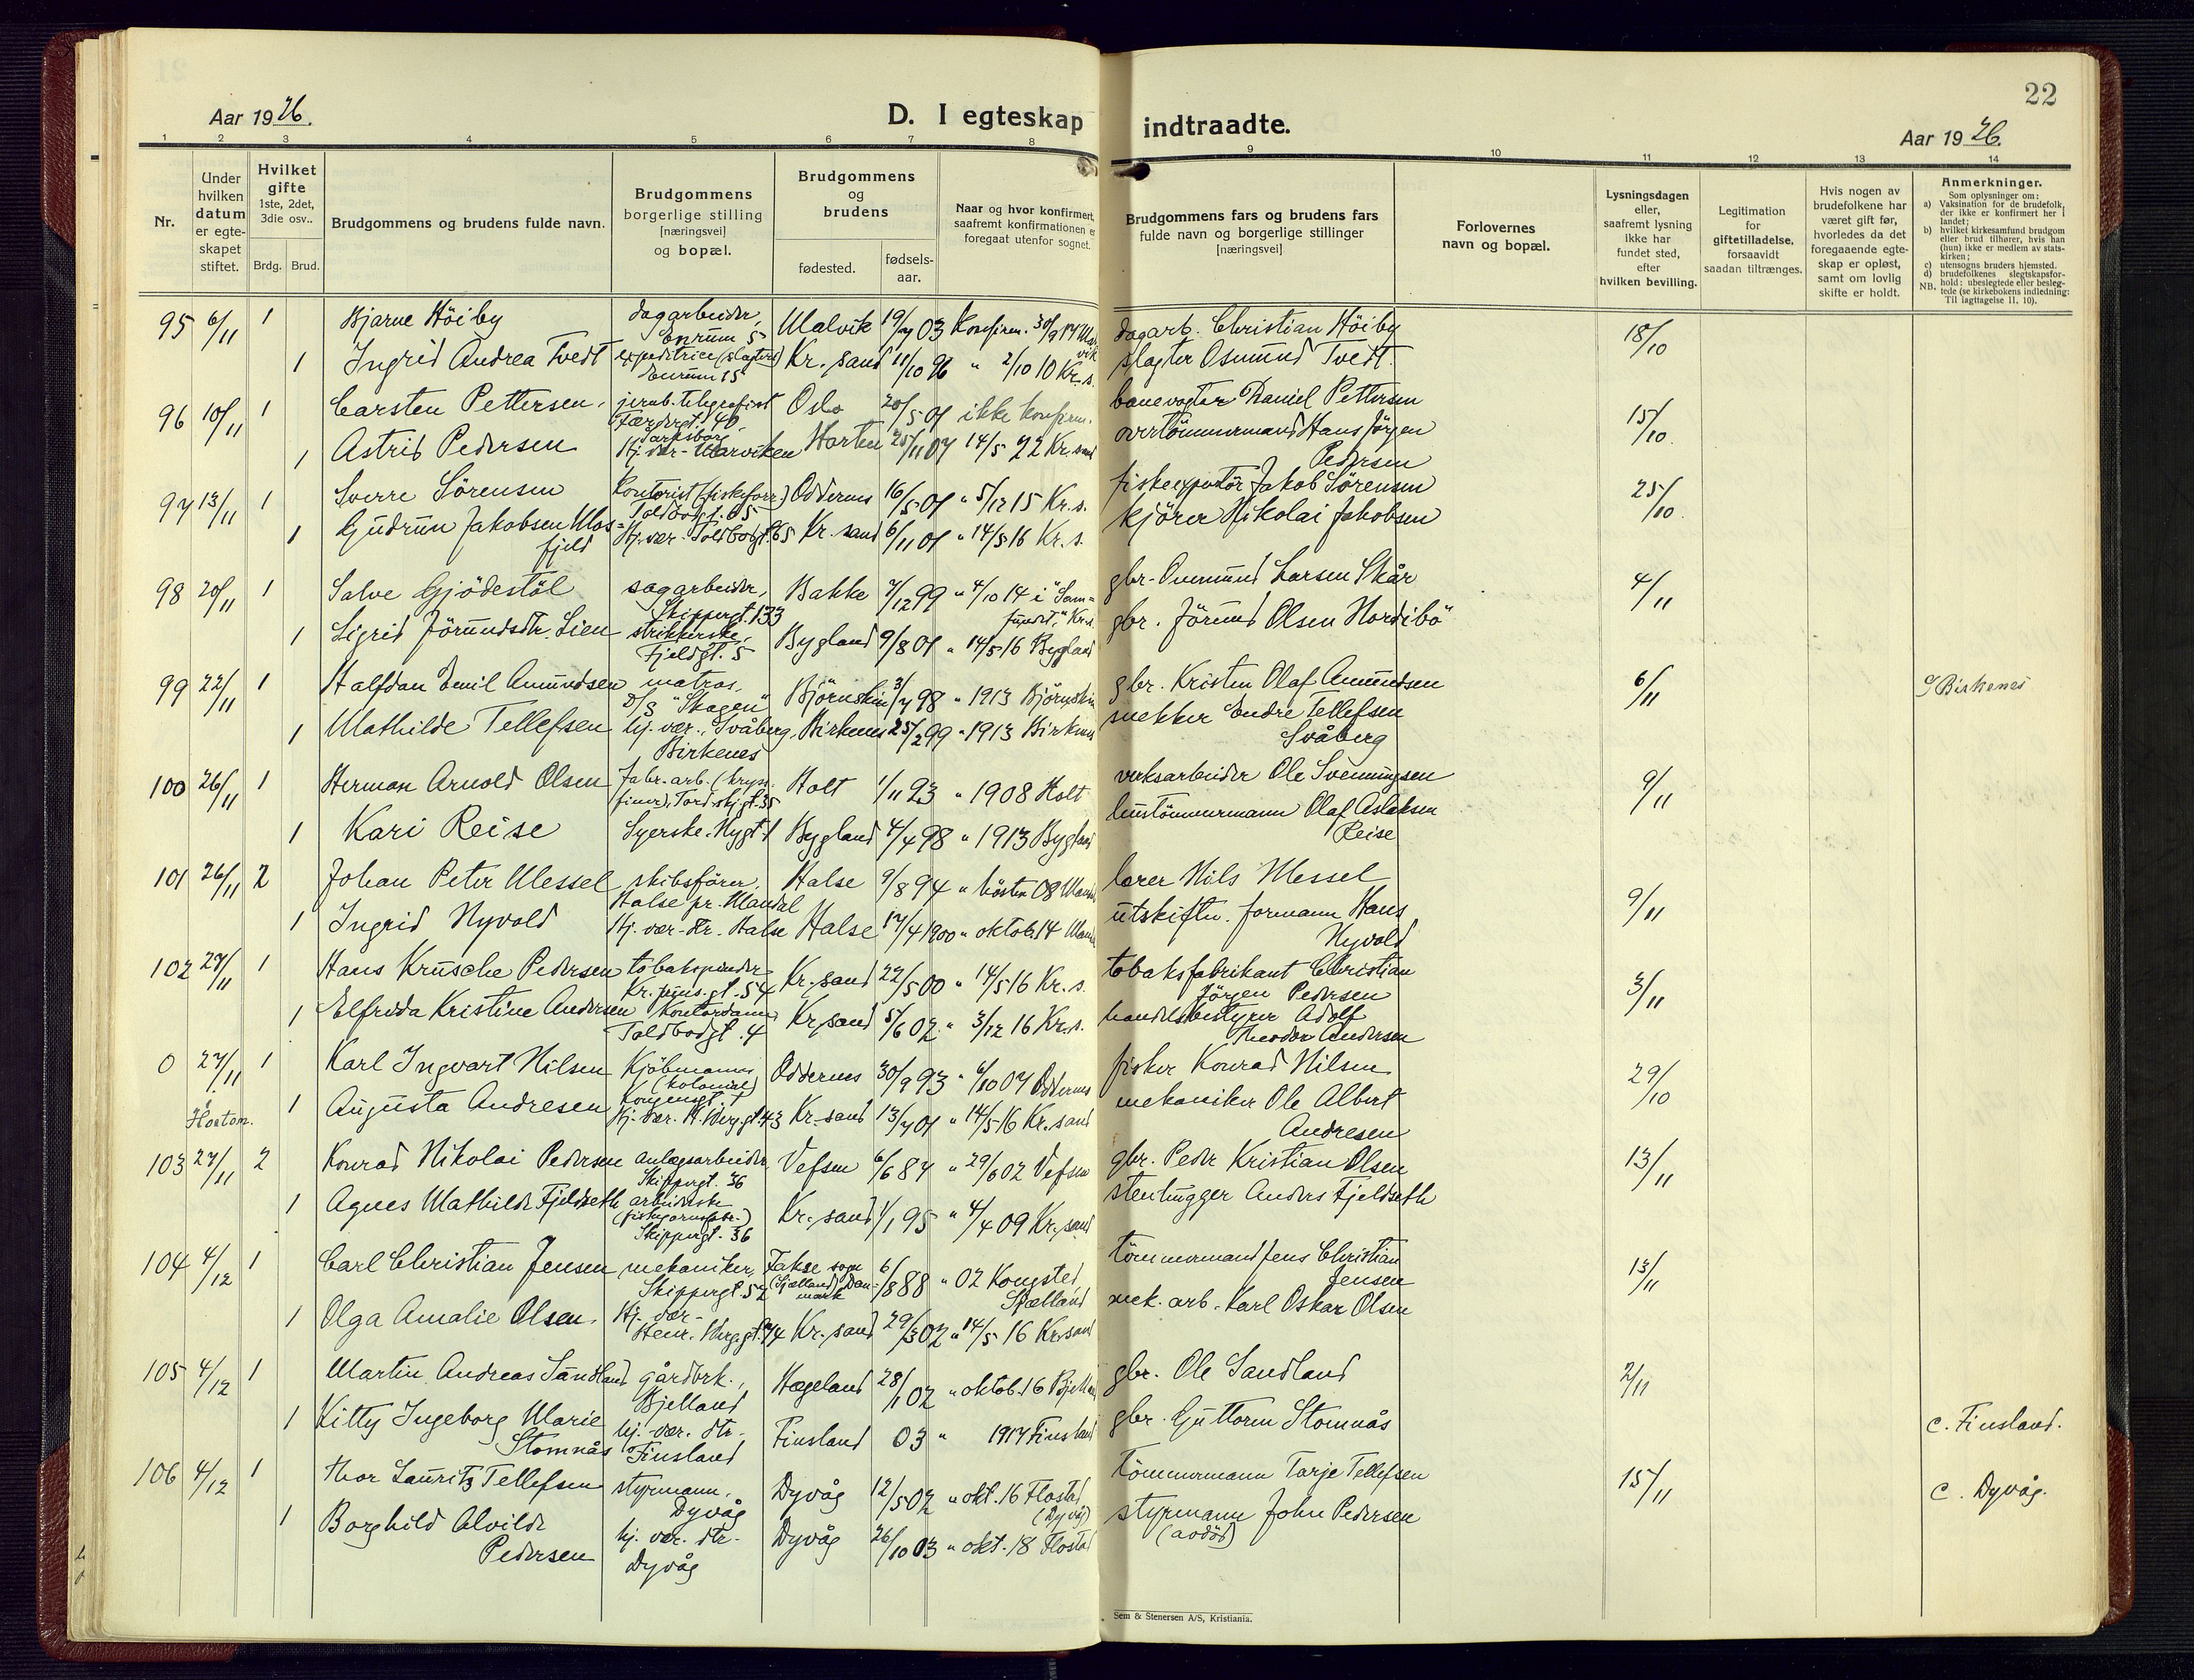 22
Aar 1926.
D. I egteskap indtraadte.
Aar 1926.
1 2 3 4 5 6 7 8 9 10 11 12 13 14
Nr.
Under hvilken datum er egteskapet stiftet.
Hvilket gifte 1ste, 2det, 3die osv..
Brdg. Brud.
Brudgommens og brudens fulde navn.
Brudgommens borgerlige stilling [næringsvei] og bopæl.
Brudgommens og brudens
fødested.
fødselsaar.
Naar og hvor konfirmert, saafremt konfirmationen er foregaat utenfor sognet.
Brudgommens fars og brudens fars fulde navn og borgerlige stillinger [næringsvei]
Forlovernes navn og bopæl.
Lysningsdagen eller, saafremt lysning ikke har fundet sted, efter hvilken bevilling.
Legitimation for giftetilladelse, forsaavidt saadan tiltrænges.
Hvis nogen av brudefolkene har været gift før, hvorledes da det foregaaende egteskap er opløst, samt om lovlig skifte er holdt.
Anmerkninger.
Som oplysninger om:
a) Vaksination for de brudefolk, der ikke er konfirmert her i landet;
b) hvilket kirkesamfund brudgom eller brud tilhører, hvis han (hun) ikke er medlem av statskirken;
c) utensogns bruders hjemsted.
d) brudefolkenes slegtskapsforhold: ubeslegtede eller beslegtede (se kirkebokens indledning:
NB. Til Iagttagelse 11, 10).
95 6/11 1 Bjarne Höiby dagarbeider, Enrum 5 Malvik 19/7 03 Konfirm. 30/9 17 Malvik dagarb. Christian Höiby 18/10
1 Ingrid Andrea Tvedt expeditrice (slagteri) Enrum 15 Kr.sand 11/10 96 " 2/10 10 Kr.s. slagter Osmund Tvedt.
96 10/11 1 Carsten Pettersen, jernb. telegrafist Oslo 20/5 01 ikke konfirm. banevogter Daniel Pettersen 15/10.
1 Astrid Pedersen Hj. vær - Marviken Horten 25/11 07 14/5 22 Kr.sand overtömmermand Hans Jörgen Pedersen
97 13/11 1 Sverre Sörensen Kontorist (fiskeforr.) Toldbodgt. 65 Oddernes 16/5 01 " 5/12 15 Kr.s. fiskeexportör Jakob Sörensen 25/10.
1 Gudrun Jakobsen Mosfjeld Hj. vær - Toldbodgt. 65 Kr.sand 6/11 01 " 14/5 16 Kr.s. kjörer Nikolai Jakobsen
98 20/11 1 Salve Gjödestöl sagarbeider, Skippergt. 133 Bakke 7/12 99 " 4/10 14 i "Samfundet", Kr.s. gbr. Ommund Larsen Skår 4/11
1 Sigrid Jörundsdtr. Lien strikkerske, Fjeldgt. 5 Bygland 9/8 01 " 14/5 16 Bygland gbr. Jörund Olsen Nordibö
99 22/11 1 Halfdan Emil Amundsen matros, D/S "Skagen" Björnskin 3/7 98 " 1913 Björnskin gbr. Kristen Olaf Amundsen 6/11 c/ Birkenes
1 Mathilde Tellefsen hj. vær., Svåberg, Birkenes Birkenes 25/2 99 " 1913 Birkenes snekker Endre Tellefsen Svåberg
100 26/11 1 Herman Arnold Olsen Fabr. arb. (krysfiner), Tordenskj.gt. 35 Holt 1/11 93 " 1908 Holt verksarbeider Ole Svenningsen 9/11
1 Kari Reise Syerske. Nygt 1 Bygland 4/4 98 " 1913 Bygland hustömmermann Olaf Aslaksen Reise
101 26/11 2 Johan Peter Messel skibsförer, Halse pr. Mandal Halse 9/8 94 " hösten 08 Mandal lærer Nils Messel 9/11
1 Ingrid Nyvold Hj. vær. Fr. Halse Halse 17/4 1900 " oktob. 14 Mandal utskiftn. formann Hans Nyvold
102 27/11 1 Hans Krusche Pedersen tobakspinder Kr. prins.gt. 54 Kr.sand 22/5 00 " 14/5 16 Kr.s. tobaksfabrikant Christian Jörgen Pedersen 3/11
1 Elfrida Kristine Andersen Kontordame Toldbodgt. 4 Kr.sand 5/6 02 " 3/12 16 Kr.s. handelsbestyrer Adolf Theodor Andersen
0 27/11 1 Karl Ingvart Nilsen Kjöbmann (kolonial) Kongensgt. 1 Oddernes 30/9 93 " 6/10 07 Oddernes fisker Konrad Nilsen 29/10
1 Augusta Andresen Hj. vær. H. Werg.gt. 43 Kr.sand 13/7 01 " 14/5 16 Kr.sand mekaniker Ole Albert Andresen
103 27/11 2 Konrad Nikolai Pedersen anlægsarbeider, Skippergt. 36 Vefsen 6/6 87 " 29/6 02 Vefsen gbr. Peder Kristian Olsen 13/11
1 Agnes Mathilde Fjeldseth arbeiderske (fiskegarnsfabr.) Skippergt. 36 Kr.sand 1/1 95 " 4/4 09 Kr.sand stenhugger Anders Fjeldseth
104 4/12 1 Carl Christian Jensen mekaniker, Skippergt. 52 Fakse sogn (Sjælland) Danmark 6/8 88 " 02 Kongsted, Sjælland tömmermand Jens Christian Jensen 13/11
1 Olga Amalie Olsen. Hj. vær - Henr. Werg.gt. 74 Kr.sand 29/3 02 " 14/5 16 Kr.sand mek. arb. Karl Oskar Olsen
105 4/12 1 Martin Andreas Sandland gårdbrk., Bjelland Hægeland 28/1 02 " oktob. 16 Bjelland gbr. Ole Sandland 2/11
1 Kitty Ingeborg Marie Stomnås hj. vær. dtr. Finsland Finsland 03 " 1917 Finsland gbr. Guttorm Stomnås c. Finsland.
106 4/12 1 Thor Lauritz Tellefsen styrmann, Dyvåg Dyvåg 12/5 02 " okt. 16 Flostad (Dyvåg) tömmermann Tarje Tellefsen 15/11 c. Dyvåg.
1 Borghild Alvilde Pedersen hj. vær. dtr. Dyvåg Dyvåg 26/10 03 " okt. 18 Flostad styrmann John Pedersen (avdöd)
Sem & Stenersen A/S, Kristiania.